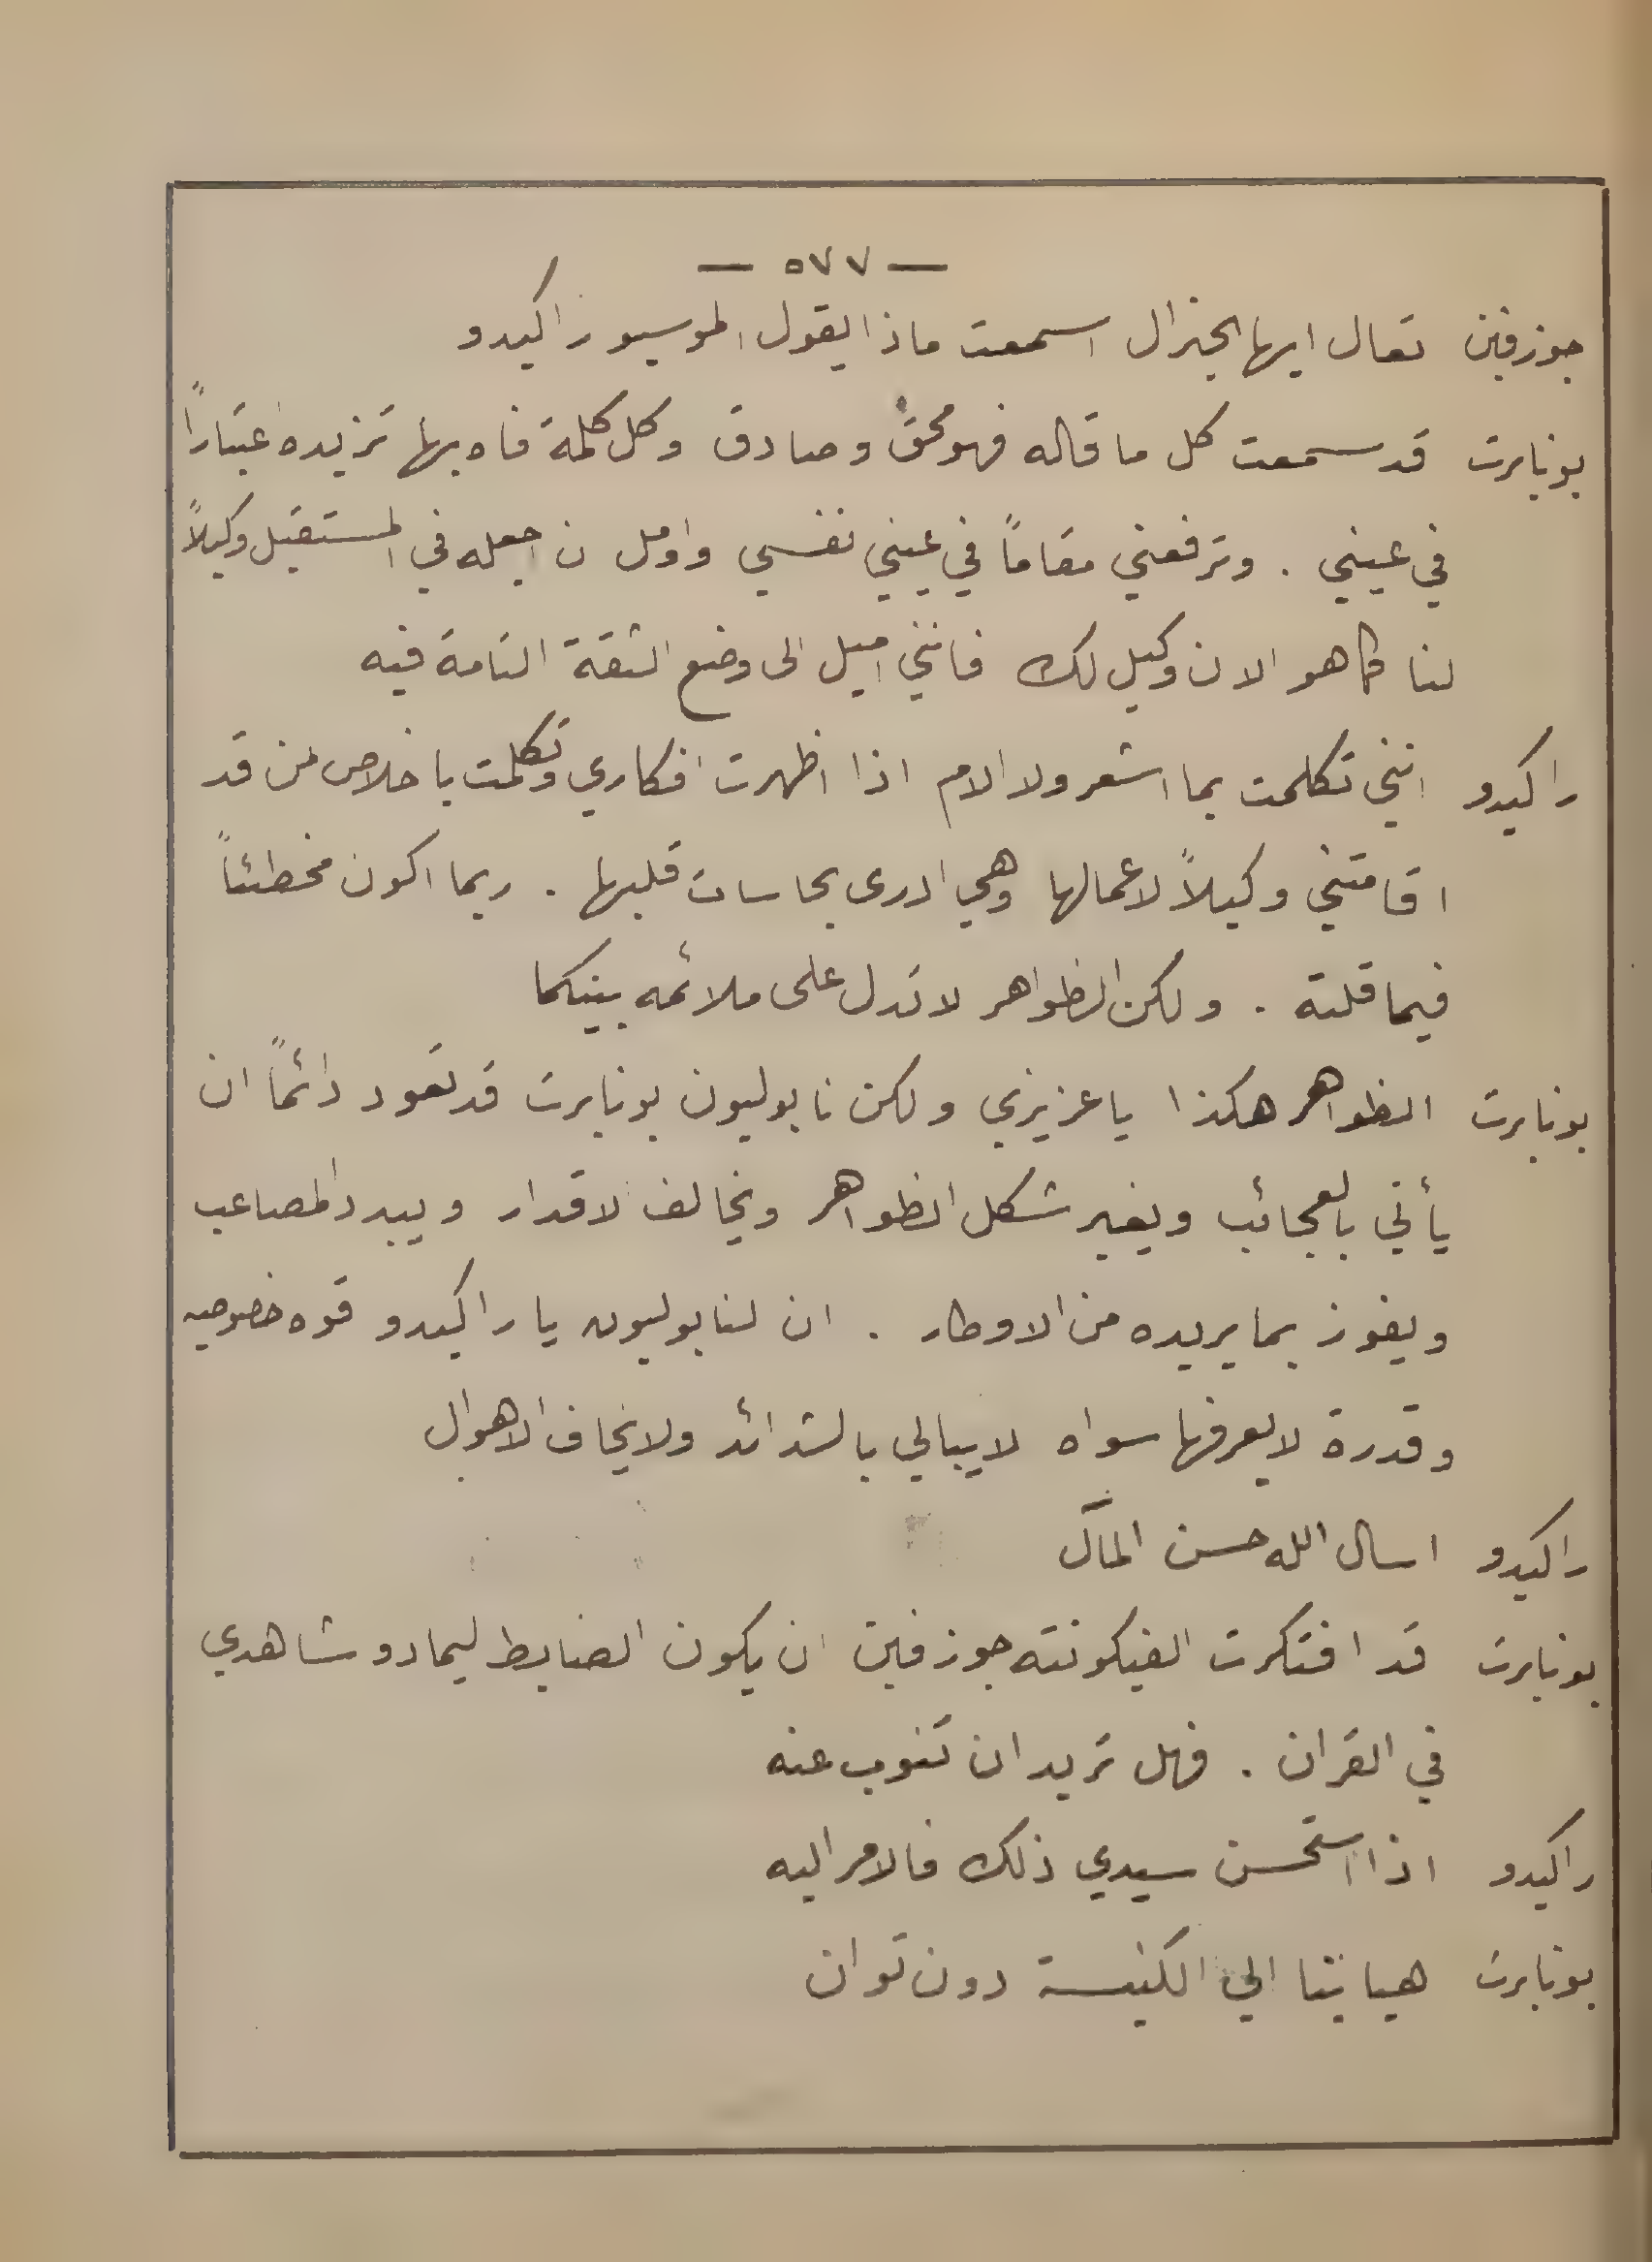 — ٥٧٧ —
جوزفين تعال ايها الجنرال اسمعت ماذا يقول الموسيو راكيدو
بونابرت قد سمعت كل ما قاله فهو محق وصادق وكل كلمة فاه بها تزيده اعتباراً
في عيني . وترفعني مقاماً في عيني نفسي واومل ان اجعله في المستقبل وكيلاً
لنا كما هو الان وكيل لك فانني اميل الى وضع الثقة التامة فيه
راكيدو انني تكلمت بما اشعر ولا الام اذا اظهرت افكاري وتكلمت باخلاص لمن قد
اقامتني وكيلاً لاعمالها وهي ادرى بحاسات قلبها . ربما اكون مخطئاً
فيما قلته . ولكن الظواهر لا تدل على ملائمه بينكما
بونابرت الظواهر هكذا يا عزيزي ولكن نابوليون بونابرت قد تعود دائماً ان
يأتي بالعجائب ويغير شكل الظواهر ويخالف الاقدار ويبدد المصاعب
ويفوز بما يريده من الاوطار . ان لنابوليون يا راكيدو قوه خصوصيه
وقدرة لا يعرفها سواه لا يبالي بالشدائد ولا يخاف الاهوال
راكيدو اسال الله حسن المآل
بونابرت قد افتكرت الفيكونته جوزفين ان يكون الضابط ليمادو شاهدي
في القران . فهل تريد ان تنوب عنه
راكيدو اذا استحسن سيدي ذلك فالامر اليه
بونابرت هيا بنا الي الكنيسة دون توان